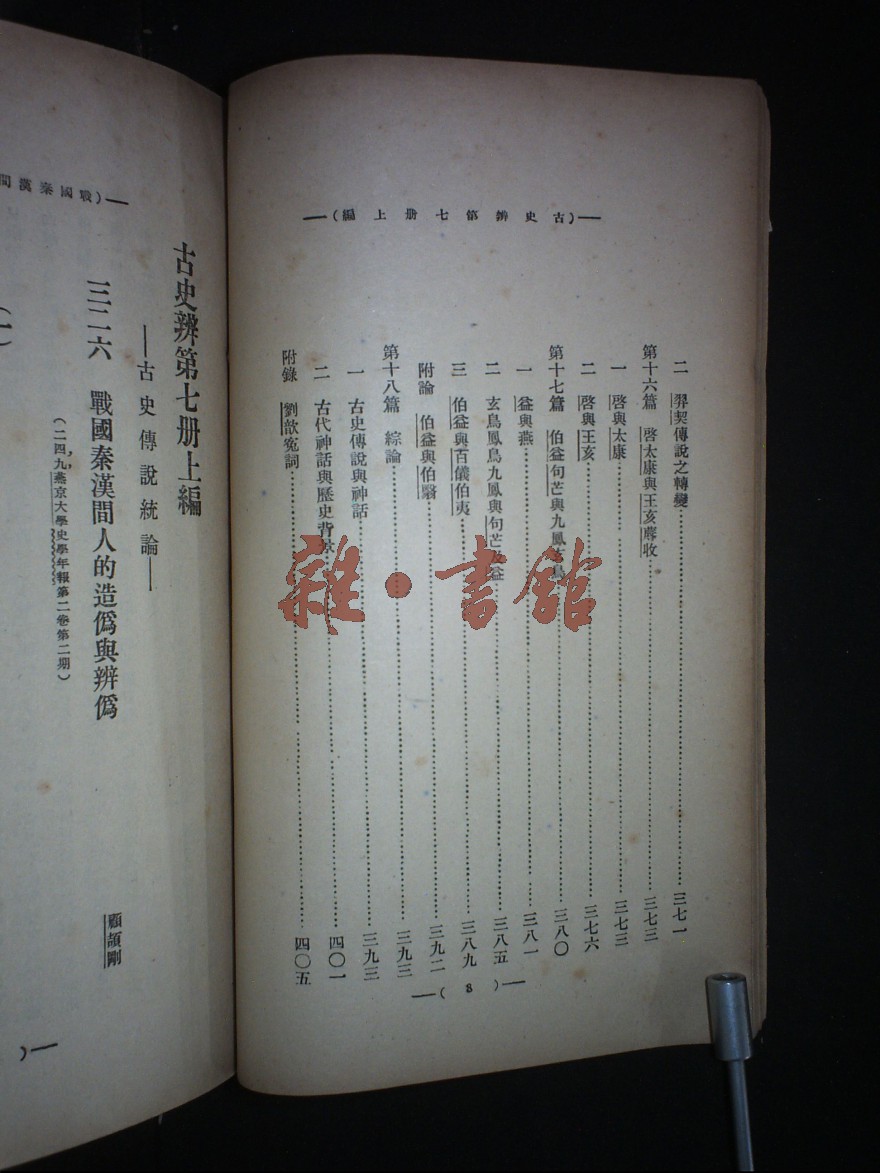 —(古史辨第七册上編)—
二 羿契傳說之轉變……三七一
第十六篇 啓太康與王亥蓐收……三七三
一 啓與太康……三七三
二 啓與王亥……三七六
第十七篇 伯益句芒與九鳳玄鳥……三八〇
一 益與燕……三八一
二 玄鳥鳳鳥九鳳與句芒及益……三八五
三 伯益與百儀伯夷……三八九
附論 伯益與伯翳……三九二
第十八篇 綜論……三九三
一 古史傳說與神話……三九三
二 古代神話與歷史背景……四〇一
附錄 劉歆冤詞……四〇五
—( 8 )—
雜·書館
戰國秦漢間
古史辨第七册上編
——古史傳說統論——
三二六 戰國秦漢間人的造僞與辨僞
(二四,九,燕京大學史學年報第二卷第二期)
顧頡剛
(一)